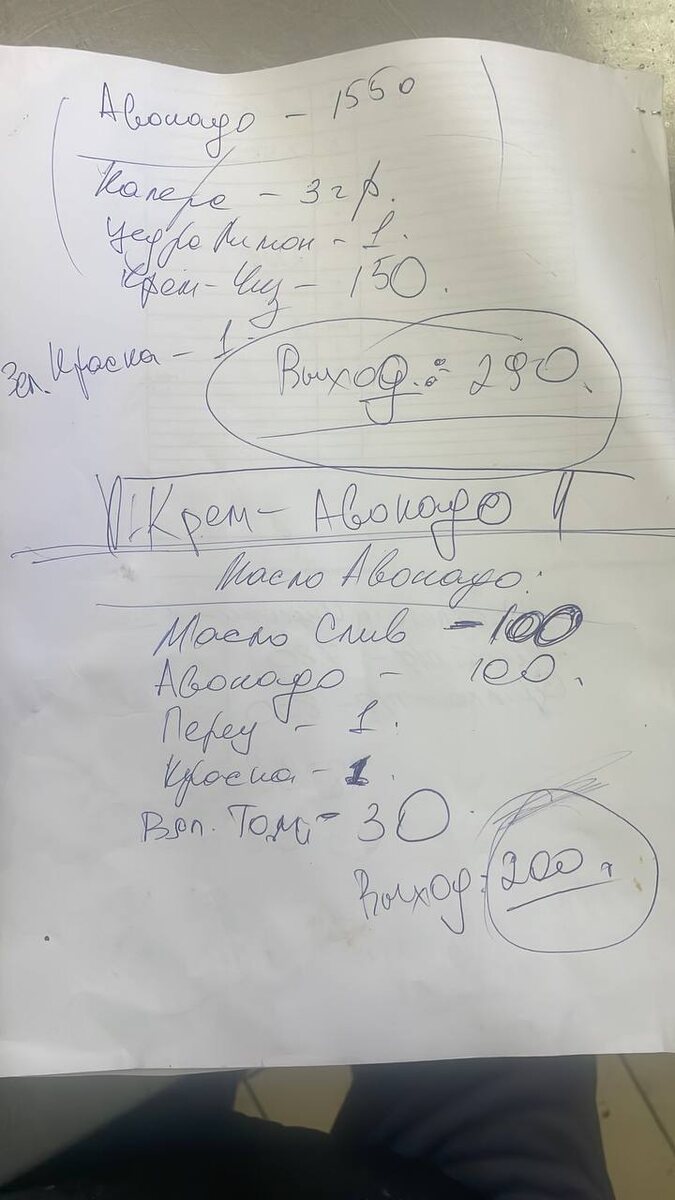 Авокадо - 1550
Каперс - 3 гр.
Цедра Лимон - 1.
Крем-Чиз - 150.
Зел. Краска - 1.
Выход: 290.
Крем-Авокадо
Масло Авокадо:
Масло Слив - 100
Авокадо - 100.
Перец - 1.
Краска - 1.
Вял. Том. - 30.
Выход: 200.